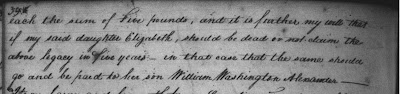 each the sum of Five pounds, and it is further my will that
if my said daughter Elizabeth, should be dead or not claim the
above legacy in five years — in that case that the same should
go and be paid to her son William Washington Alexander —